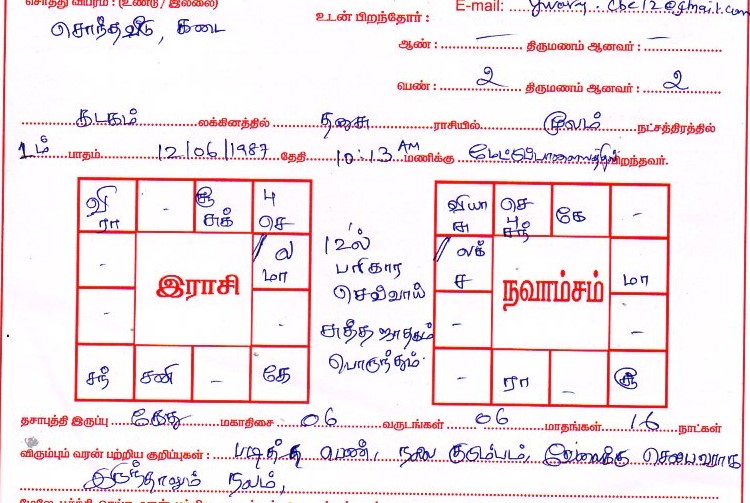 சொத்து விபரம் : (உண்டு / இல்லை)
E-mail: ywory.cbe12@gmail.com
சொந்தவீடு, கடை
உடன் பிறந்தோர் :
ஆண் : — திருமணம் ஆனவர் : —
பெண் : 2 திருமணம் ஆனவர் : 2
கடகம் லக்கினத்தில் தனுசு ராசியில் மூலம் நட்சத்திரத்தில்
1ம் பாதம் 12/06/1987 தேதி 10:13 AM மணிக்கு மேட்டுப்பாளையத்தில் பிறந்தவர்.
வி ரா - சூ சுக் பு செ
- ல மா
இராசி
- -
சந் சனி - கே
12ல் பரிகார செவ்வாய் சுத்த ஜாதகம் பொருந்தும்.
வியா சு செ பு சந் கே -
லக் ச மா
நவாம்சம்
- -
- ரா - சூ
தசாபுத்தி இருப்பு கேது மகாதிசை 06 வருடங்கள் 06 மாதங்கள் 16 நாட்கள்
விரும்பும் வரன் பற்றிய குறிப்புகள் : படித்த பெண், நல்ல குடும்பம், வேலைக்கு செல்பவராக
இருந்தாலும் நலம்,